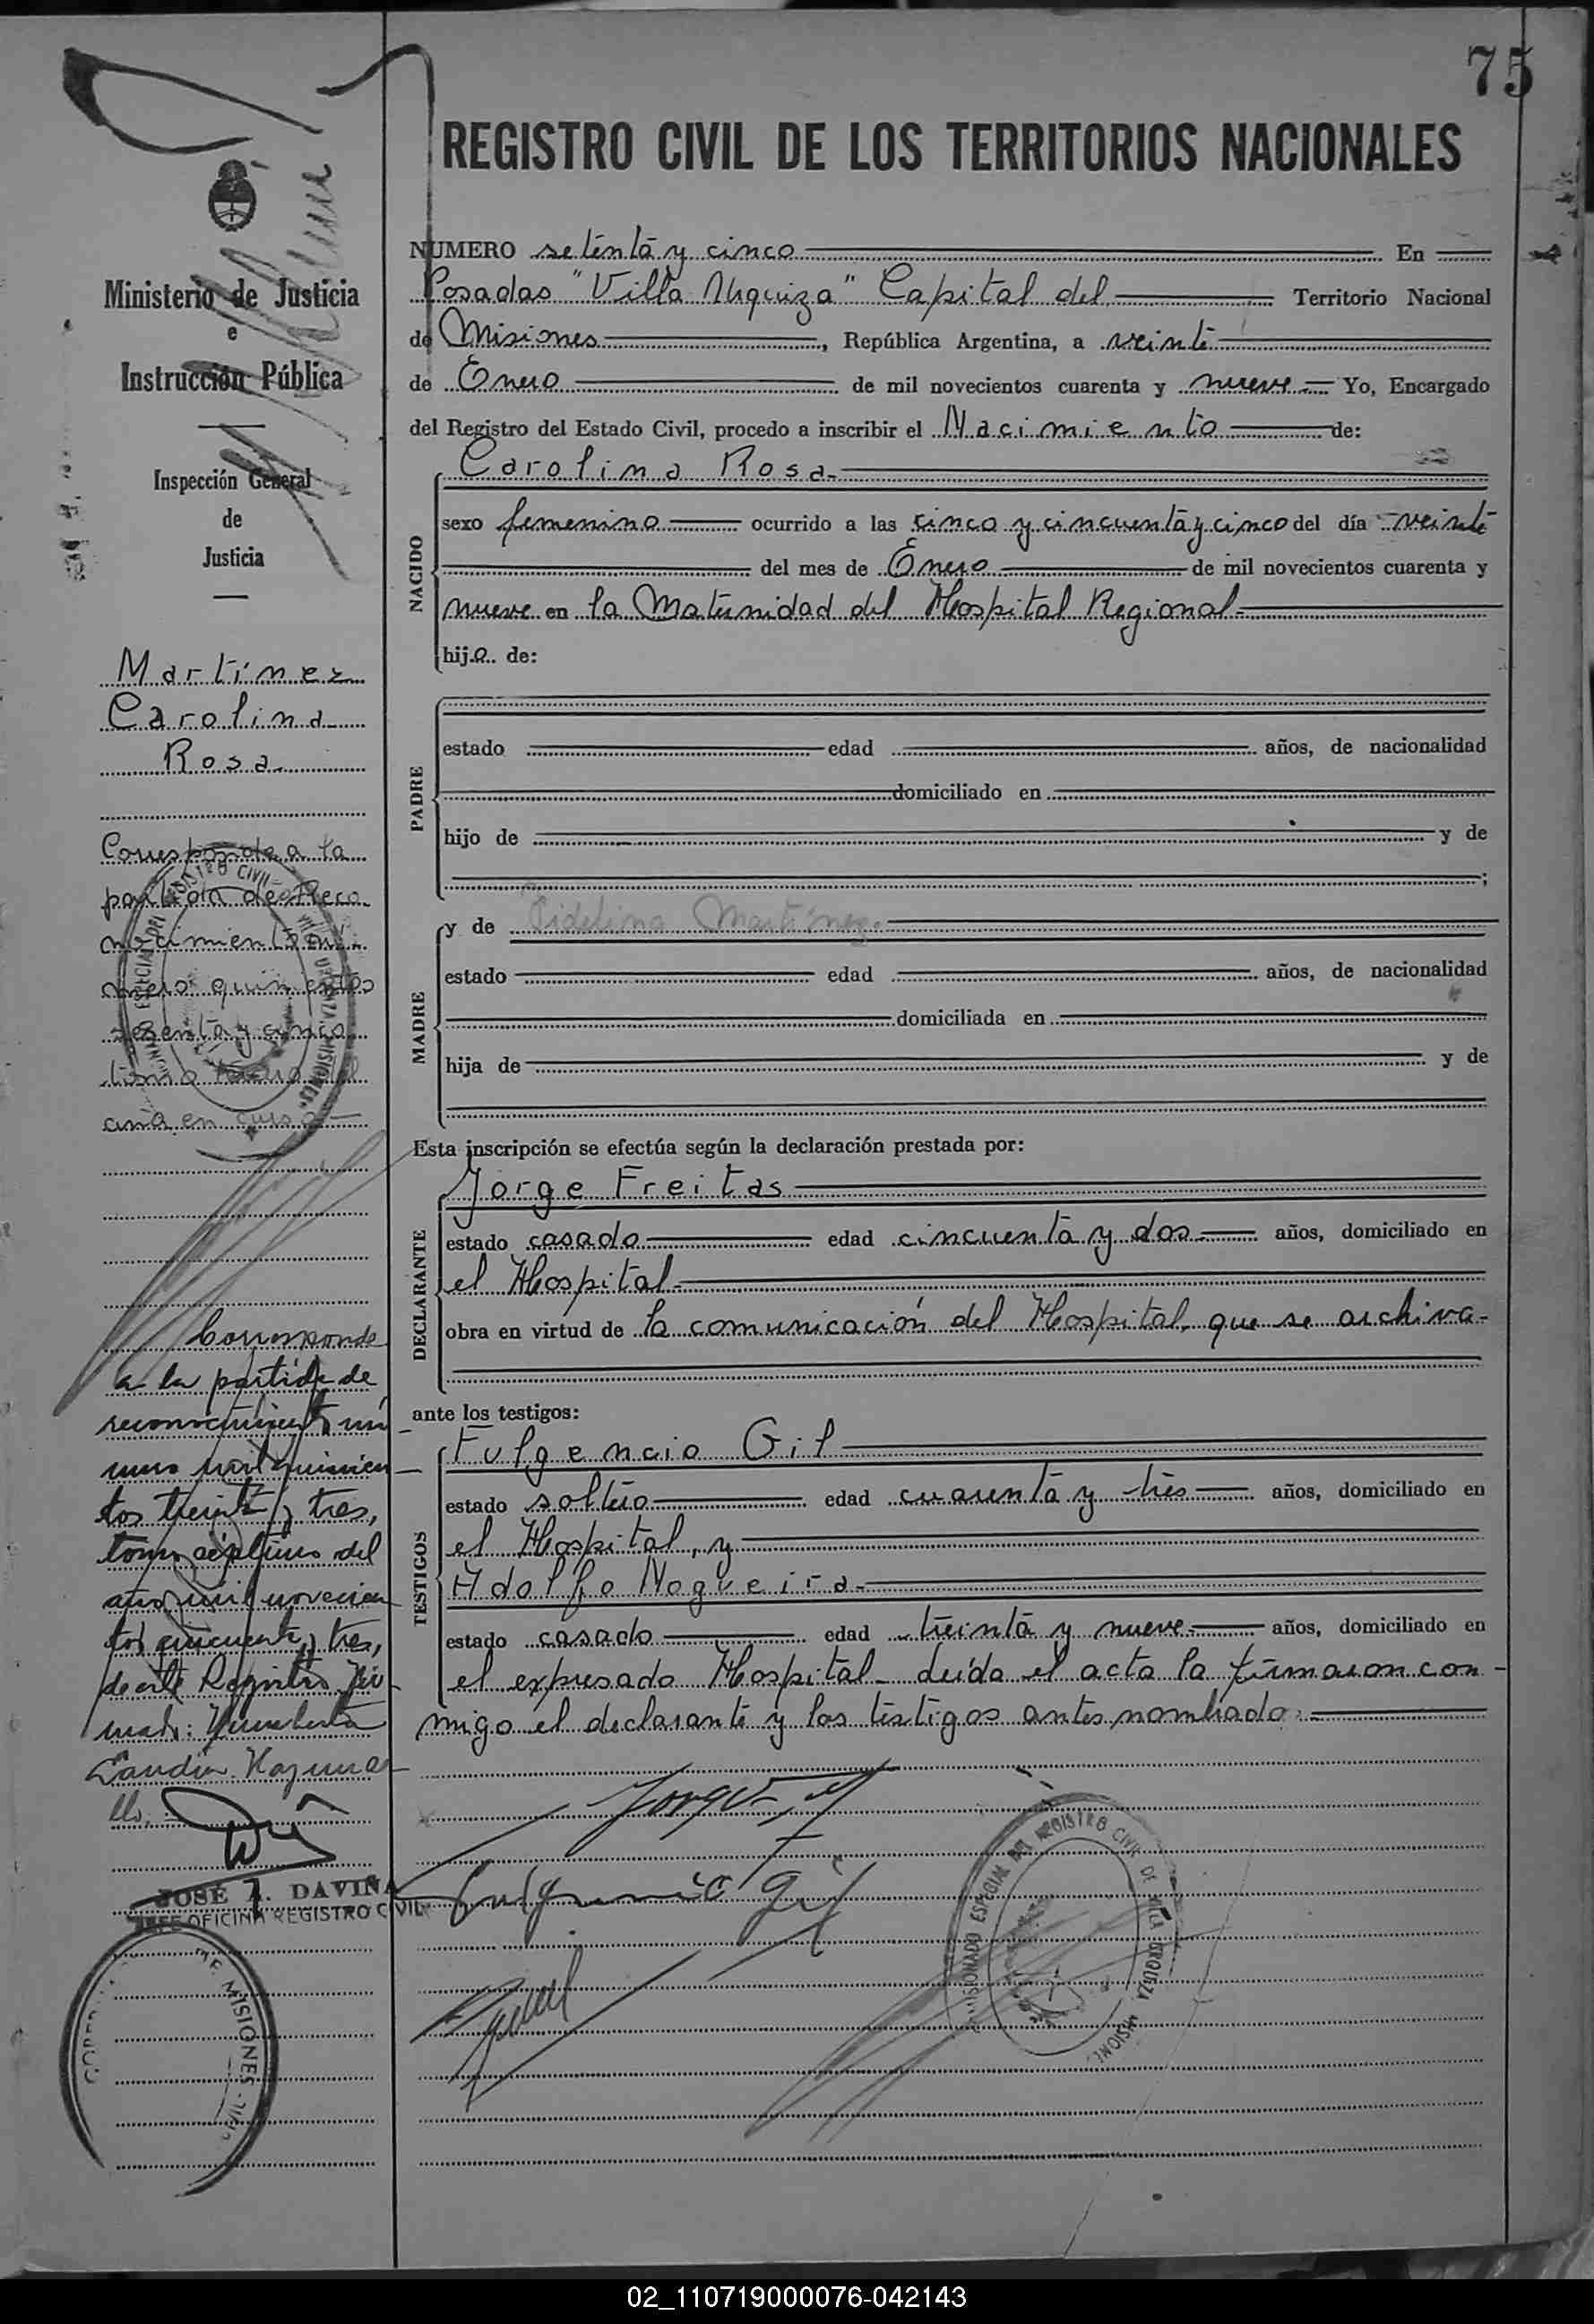 75
REGISTRO CIVIL DE LOS TERRITORIOS NACIONALES
Ministerio de Justicia
e
Instrucción Pública
Inspección General
de
Justicia
Martínez
Carolina
Rosa
Corresponde a la
partida de Reco
nocimiento nú-
mero quinientos
sesenta y cinco
tomo del
año en curso
Corresponde
a la partida de
reconocimiento nú
mero mil quinien
tos treinta y tres,
tomo séptimo del
año mil novecien
tos cincuenta y tres,
de este Registro. Fir
mado:
JOSÉ A. DAVIÑA
JEFE OFICINA REGISTRO CIVIL
MISIONES
NUMERO setenta y cinco En
Posadas "Villa Urquiza" Capital del Territorio Nacional
de Misiones, República Argentina, a veinte
de Enero de mil novecientos cuarenta y nueve.- Yo, Encargado
del Registro del Estado Civil, procedo a inscribir el Nacimiento de:
NACIDO
Carolina Rosa-
sexo femenino ocurrido a las cinco y cincuenta y cinco del día veinte
del mes de Enero de mil novecientos cuarenta y
nueve en la Maternidad del Hospital Regional-
hija de:
PADRE
estado edad años, de nacionalidad
domiciliado en
hijo de y de
;
MADRE
y de Fidelina Martínez.-
estado edad años, de nacionalidad
domiciliada en
hija de y de
Esta inscripción se efectúa según la declaración prestada por:
DECLARANTE
Jorge Freitas
estado casado edad cincuenta y dos.- años, domiciliado en
el Hospital.-
obra en virtud de la comunicación del Hospital, que se archiva-
ante los testigos:
TESTIGOS
Fulgencio Gil
estado soltero edad cuarenta y tres años, domiciliado en
el Hospital, y
Adolfo Nogueira-
estado casado edad treinta y nueve.- años, domiciliado en
el expresado Hospital- Leída el acta la firmaron con-
migo el declarante y los testigos antes nombrado.-
Fulgencio Gil
COMISIONADO ESPECIAL DEL REGISTRO CIVIL DE VILLA URQUIZA MISIONES
02_110719000076-042143